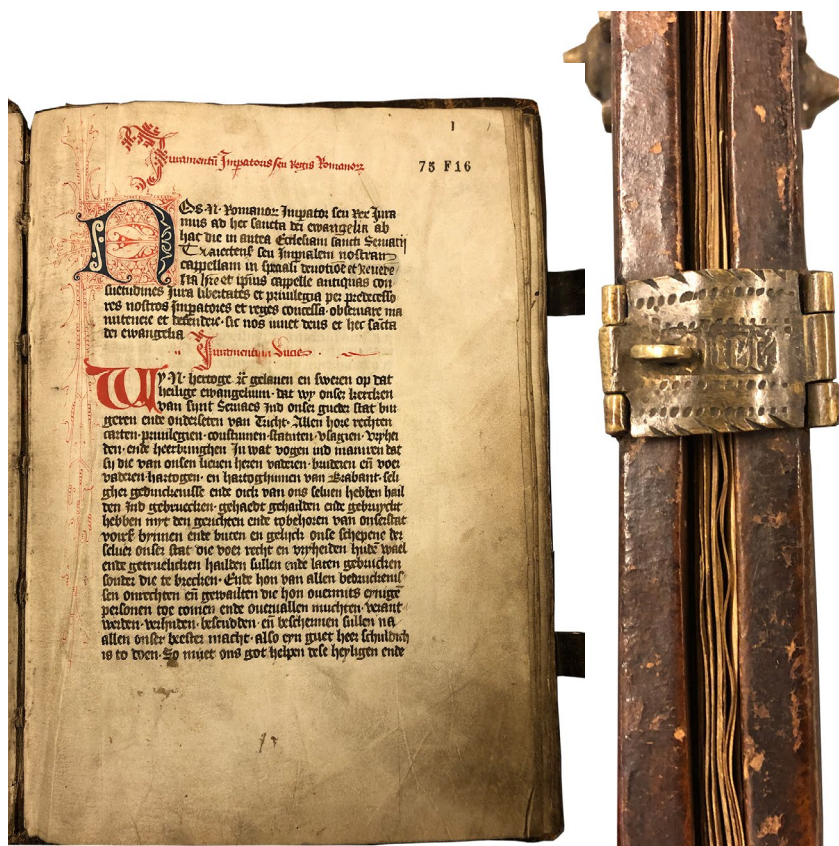 Juramentū Imꝑatoris seu Regis Romanoꝝ
1
75 F16
NOs · N · Romanoꝝ Imꝑator seu Rex Jura
mus ad hec sancta dei ewangelia ab
hac die in antea Ecclesiam sancti Seruatij
Traiectens̄ seu Imꝑialem nostram
cappellam in sp̄ali deuotiōe et Reuere
tia h̄re et ip̄ius cappelle antiquas con
suetudines Jura libertates et priuilegia per predecesso
res nostros Imꝑatores et reges concessa · obseruare ma
nutenere et defendere · sic nos iuuet deus et hec sācta
dei ewangelia
Juramentum Ducis
Wy · N · hertoge ꝛc̄ gelauen en sweren op dat
heilige ewangelium · dat wy onser kercken
van sint Seruaes Ind onser gueder stat bur
geren ende onderseten van Tricht · Allen hore rechten
carten · priuilegien · coustumen · statuten · vsagien · vryhei
den · ende heerbringhen In wat vogen ind manirē dat
sy die van onsen lieuen heren vaderen · bruderen eñ voer
vaderen · hartogen · en hartoghinnen van Brabant · seli
gher gedinckenisse ende oick van ons seluen hebben hail
den Ind gebruecken · gehaedt gehailden ende gebruyckt
hebben myt den gerichten ende tobehoren van onser stat
vorß bynnen ende buten en gelijck onse schepene der
seluer onser stat die voer recht en vryheiden hudē wael
ende getruelicken hailden sullen ende laten gebruicken
sonder die te brecken · Ende hon van allen bedruckenis
sen onrechten eñ gewailten die hon ouermits eynige
personen toe comen ende oueruallen muchten · verant
werden · verhuden · bescudden · eñ beschermen sullen na
allen onser beester macht · also eyn guet heer schuldich
is to doen · So muet ons got helpen dese heyligen ende